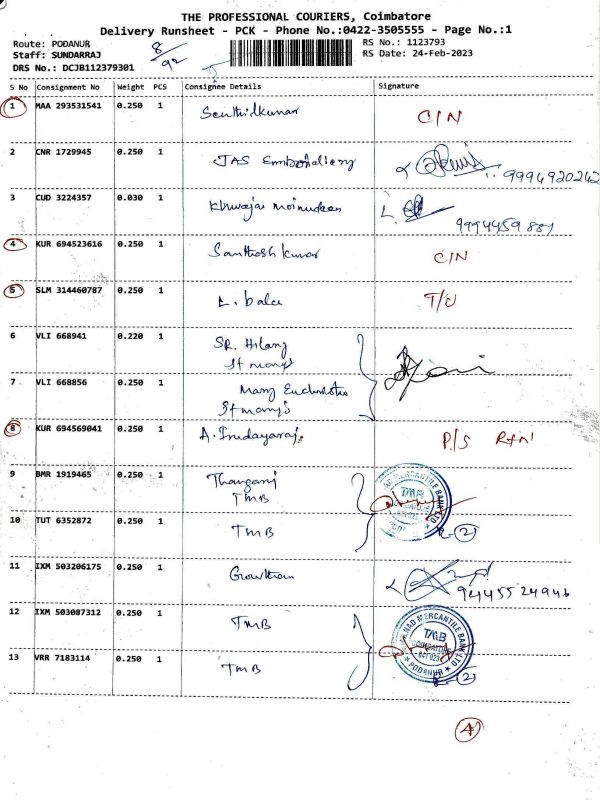 THE PROFESSIONAL COURIERS, Coimbatore
Delivery Runsheet - PCK - Phone No.:0422-3505555 - Page No.:1
Route: PODANUR
Staff: SUNDARRAJ
DRS No.: DCJB112379301
8/92
RS No.: 1123793
RS Date: 24-Feb-2023
S No Consignment No Weight PCS Consignee Details Signature
1 MAA 293531541 0.250 1 Senthilkumar C/N
2 CNR 1729945 0.250 1 JAS Embroidery 9994920242
3 CUD 3224357 0.030 1 Khwaja moinudeen 9994459881
4 KUR 694523616 0.250 1 Santhosh kumar C/N
5 SLM 314460787 0.250 1 L. bala T/U
6 VLI 668941 0.220 1 SR.
St mary's
7 VLI 668856 0.250 1 Mary
St mary's
8 KUR 694569041 0.250 1 A. Irudayaraj. P/S Rtn
9 BMR 1919465 0.250 1 Thangaraj
TMB
10 TUT 6352872 0.250 1 TMB 2
11 IXM 503206175 0.250 1 Gowtham 9445524946
12 IXM 503087312 0.250 1 TMB
13 VRR 7183114 0.250 1 TMB 2
TAMILNAD MERCANTILE BANK LTD
TMB
COIMBATORE
PODANUR
4